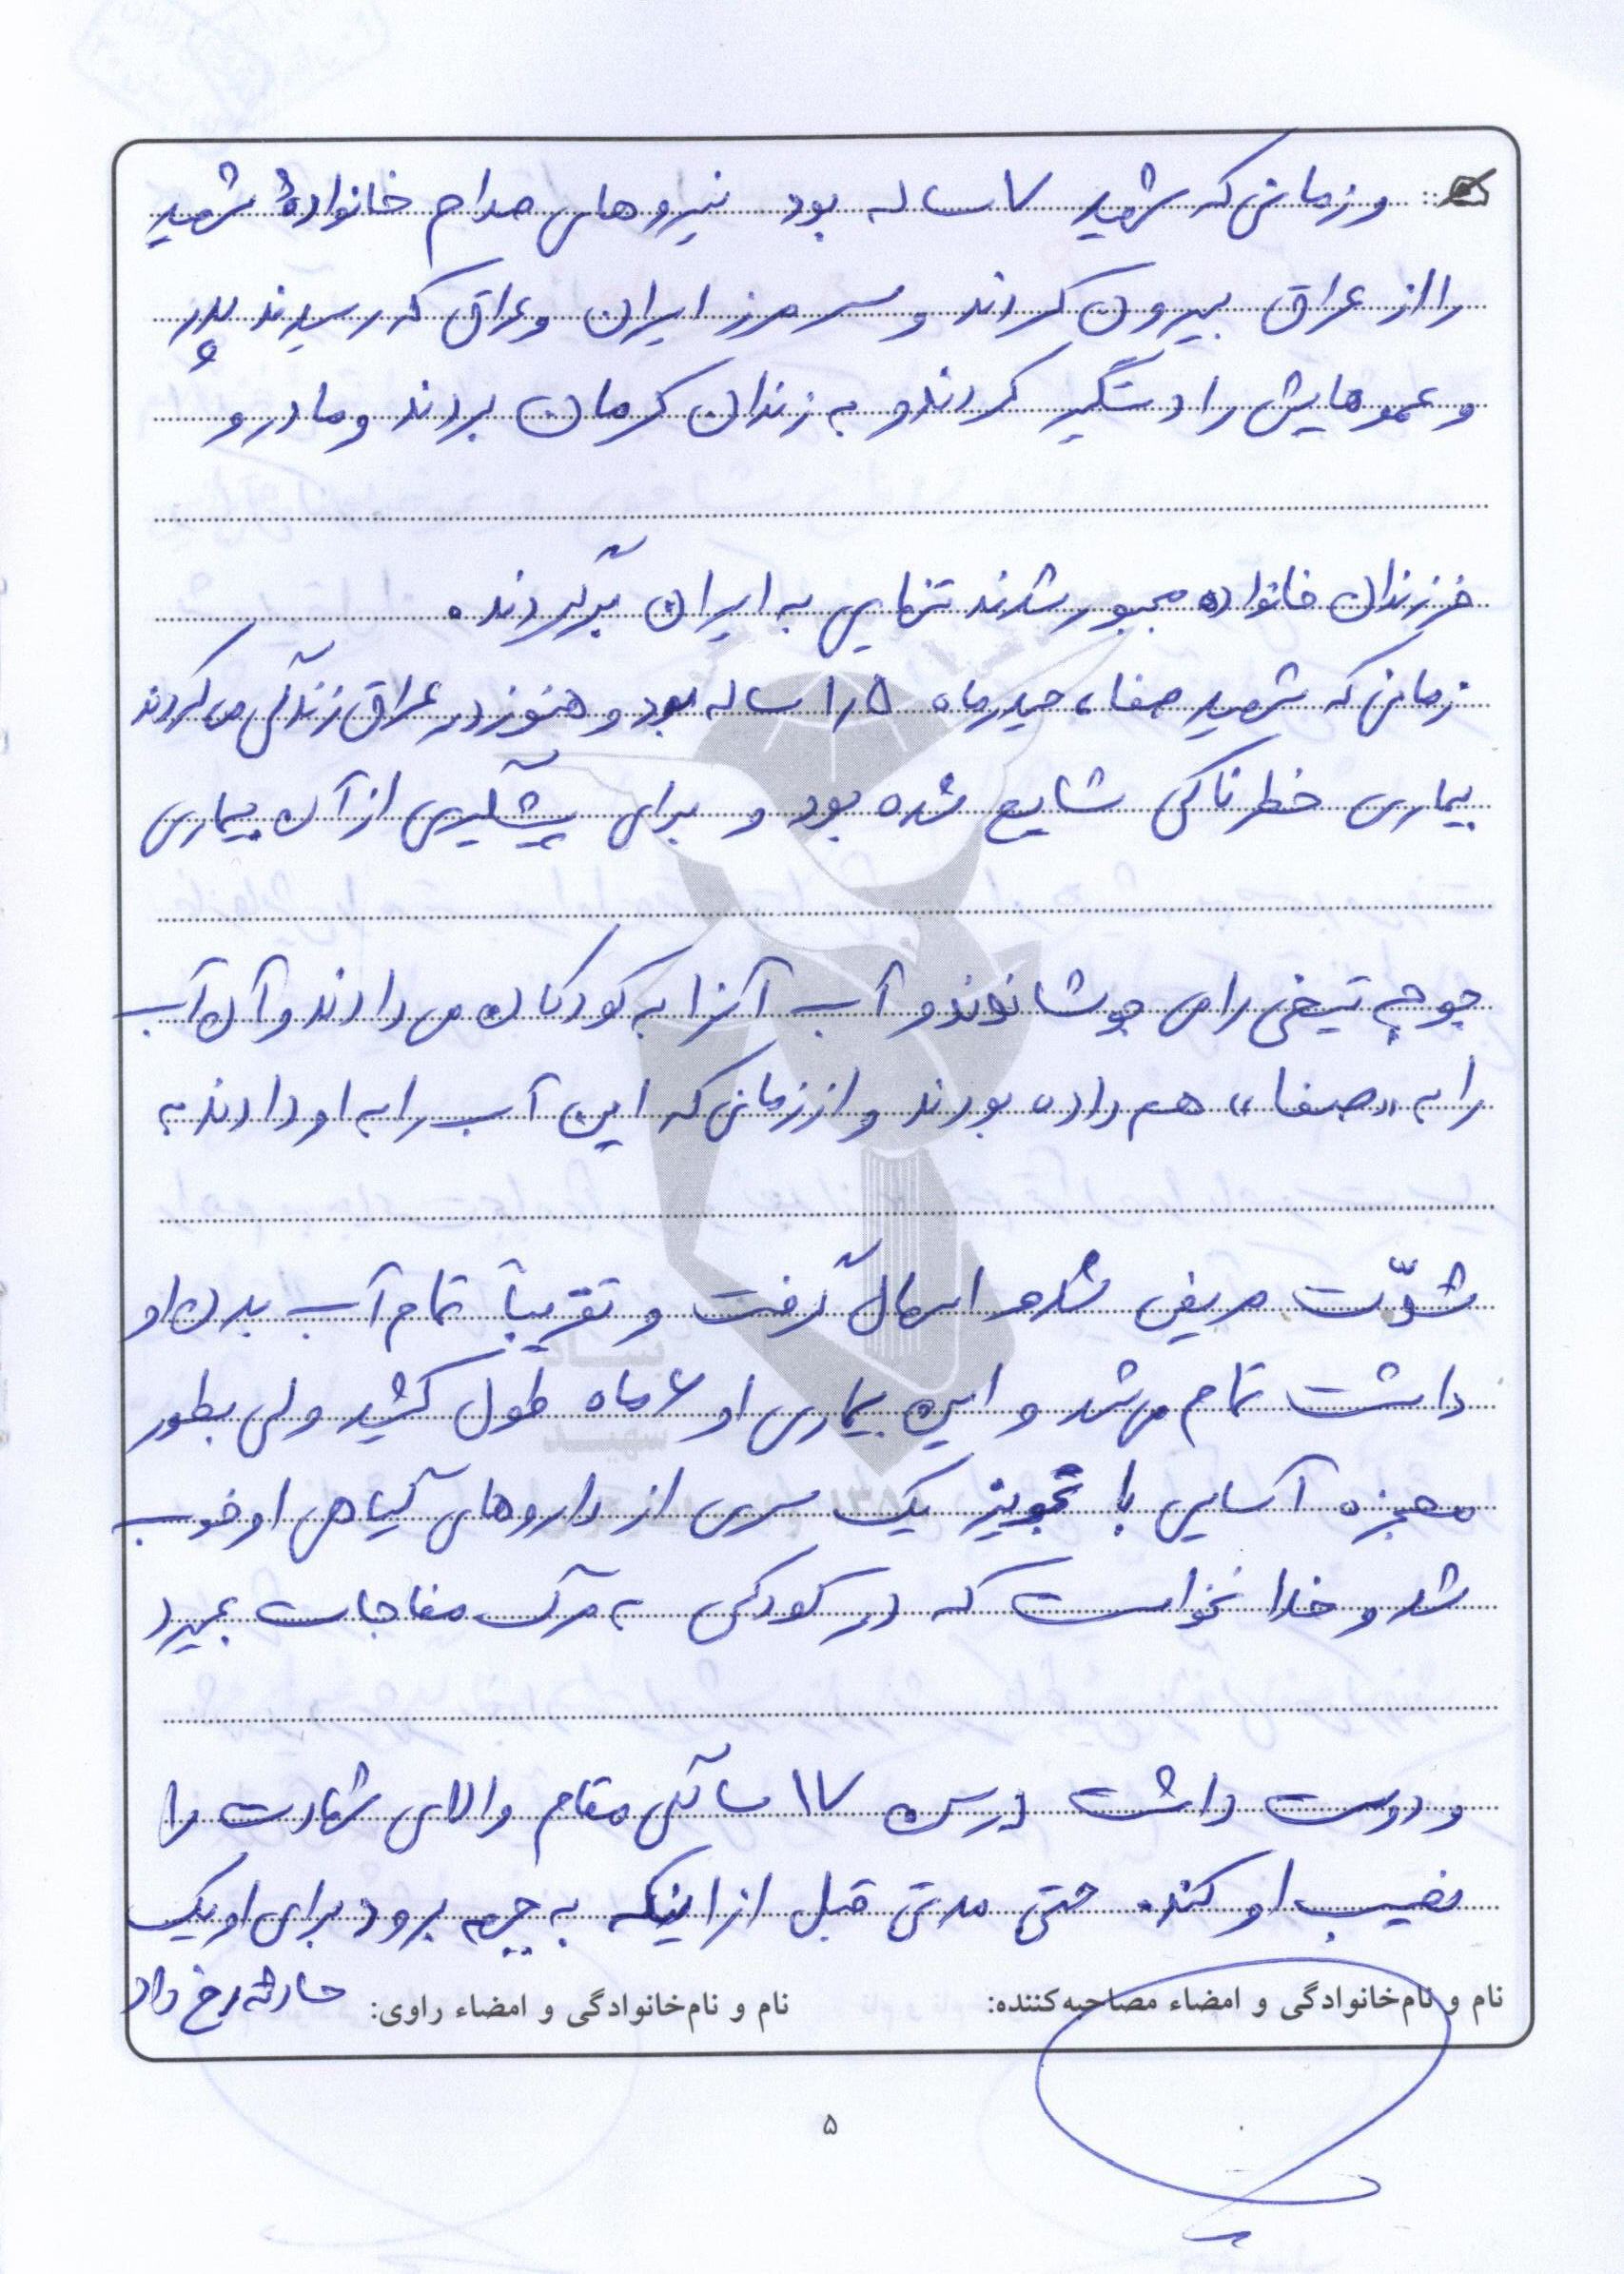 وزمانی که شهید ۷ ساله بود نیروهای صدام خانوادهٔ شهید
را از عراق بیرون کردند و سر مرز ایران و عراق که رسیدند پدر
و عموهایش را دستگیر کردند و به زندان کرمان بردند و مادر و
فرزندان خانواده مجبور شدند تنهایی به ایران برگردند.
زمانی که شهید صفاء حیدرماه ۱/۵ ساله بود و هنوز در عراق زندگی می‌کردند
بیماری خطرناکی شایع شده بود و برای پیشگیری از آن بیماری
جوجه تیغی را می جوشاندند و آب آنرا به کودکان می دادند و آن آب
را به «صفا» هم داده بودند و از زمانی که این آب را به او دادند به
شدّت مریض شد و اسهال گرفت و تقریباً تمام آب بدن او
داشت تمام می شد و این بیماری او ۶ ماه طول کشید ولی بطور
معجزه آسایی با تجویز یک سری از داروهای گیاهی او خوب
شد و خدا نخواست که در کودکی به مرگ مفاجات بمیرد
و دوست داشت در سن ۱۷ سالگی مقام والای شهادت را
نصیب او کند. حتی مدتی قبل از اینکه به جبهه برود برای او یک
حادثه رخ داد
نام و نام‌خانوادگی و امضاء مصاحبه‌کننده: نام و نام‌خانوادگی و امضاء راوی:
۵